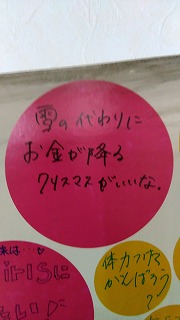 雪の代わりに
お金が降る
クリスマスがいいな。
体力つける
がんばろう